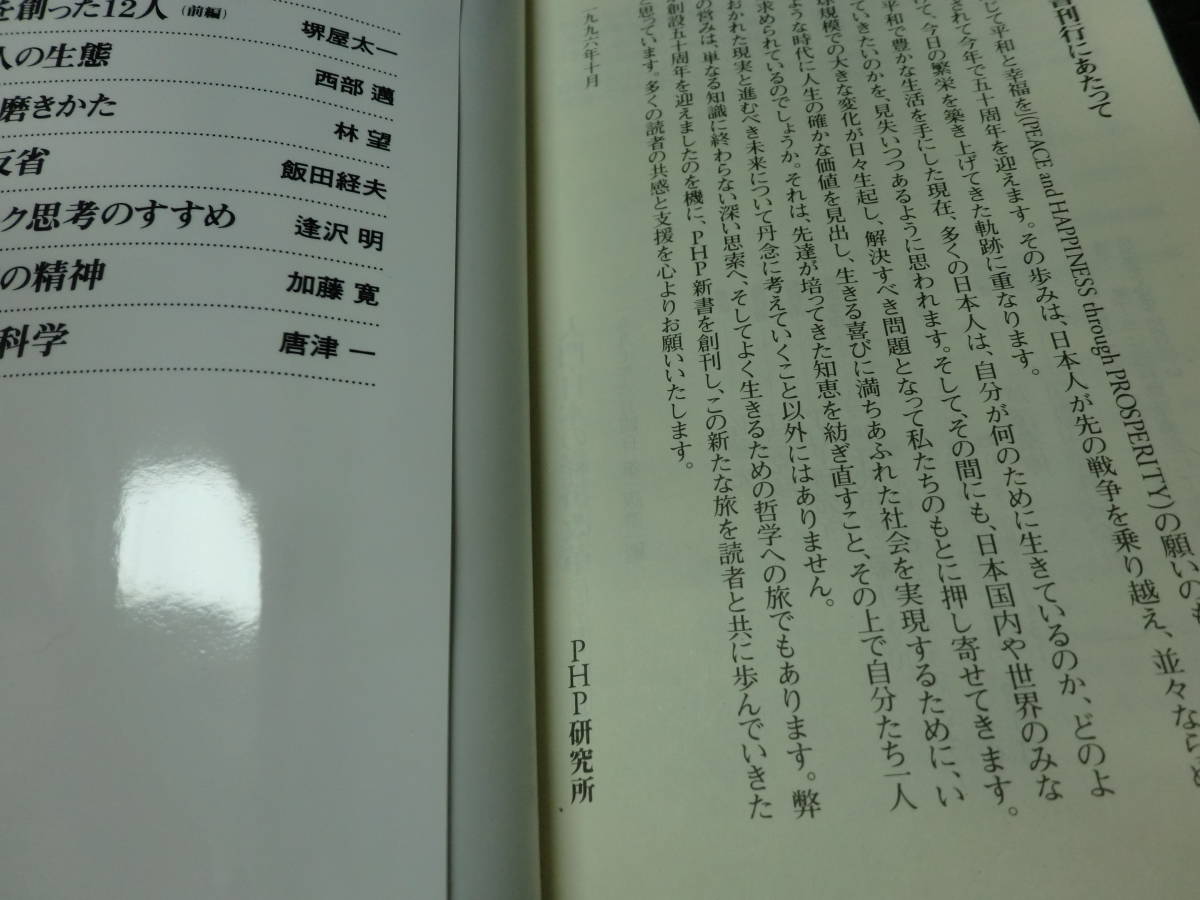 を創った12人 (前編) 堺屋太一
人の生態 西部 邁
磨きかた 林 望
反省 飯田経夫
ク思考のすすめ 逢沢 明
の精神 加藤 寛
科学 唐津 一
刊行にあたって
じて平和と幸福を」(PEACE and HAPPINESS through PROSPERITY)の願いのも
されて今年で五十周年を迎えます。その歩みは、日本人が先の戦争を乗り越え、並々なら
けて、今日の繁栄を築き上げてきた軌跡に重なります。
平和で豊かな生活を手にした現在、多くの日本人は、自分が何のために生きているのか、どのよ
ていきたいのかを、見失いつつあるように思われます。そして、その間にも、日本国内や世界のみな
球規模での大きな変化が日々生起し、解決すべき問題となって私たちのもとに押し寄せてきます。
ような時代に人生の確かな価値を見出し、生きる喜びに満ちあふれた社会を実現するために、い
求められているのでしょうか。それは、先達が培ってきた知恵を紡ぎ直すこと、その上で自分たち一人
おかれた現実と進むべき未来について丹念に考えていくこと以外にはありません。
の営みは、単なる知識に終わらない深い思索へ、そしてよく生きるための哲学への旅でもあります。弊
創設五十周年を迎えましたのを機に、PHP新書を創刊し、この新たな旅を読者と共に歩んでいきた
と思っています。多くの読者の共感と支援を心よりお願いいたします。
一九九六年十月
PHP研究所